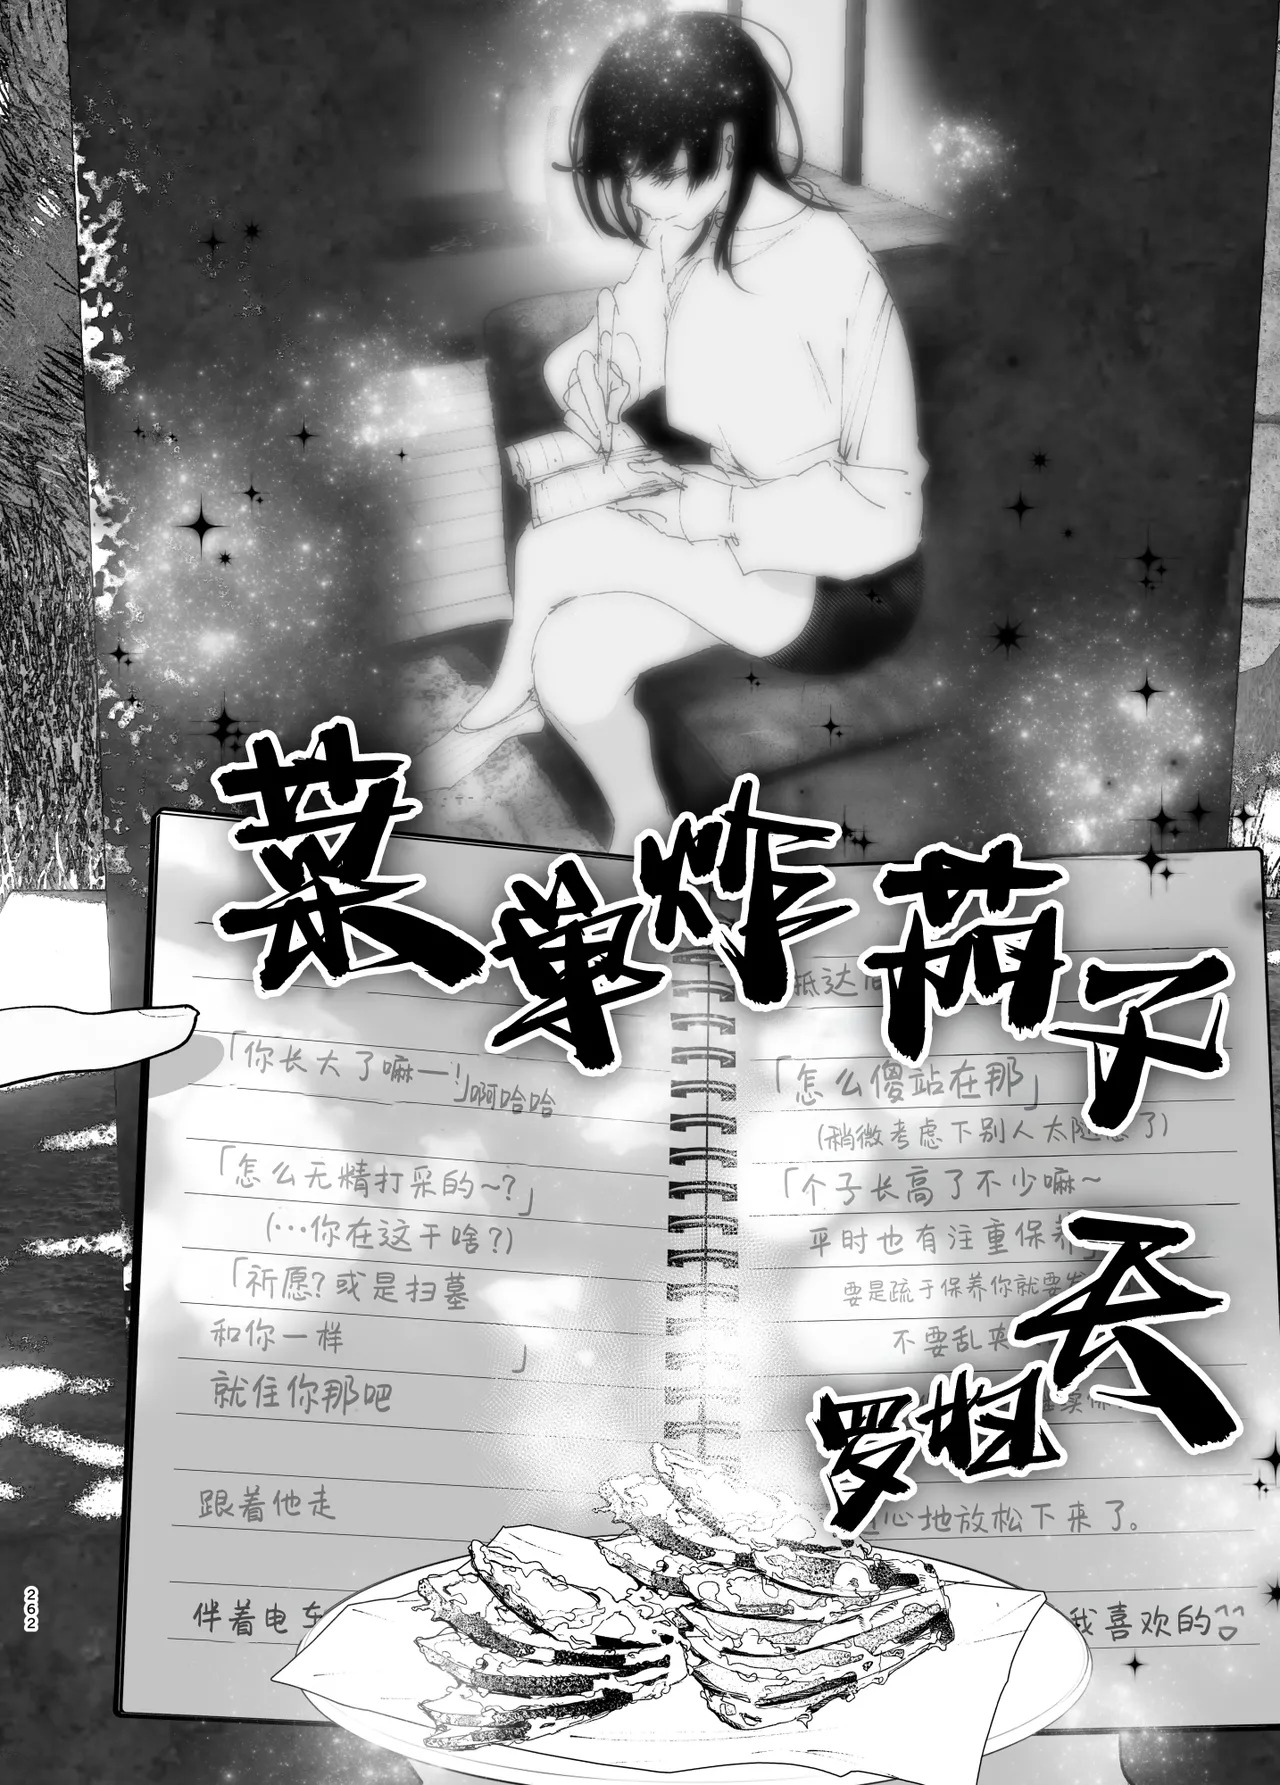 菜单炸茄子
天
罗妇
「你长大了嘛一!」啊哈哈
「怎么无精打采的~?」
(…你在这干啥?)
「祈愿?或是扫墓
和你一样 」
就住你那吧
跟着他走
伴着电车
抵达后
「怎么傻站在那」
(稍微考虑下别人太随意了)
「个子长高了不少嘛~
平时也有注重保养
要是疏于保养你就要发
不要乱来
心地放松下来了。
我喜欢的
262